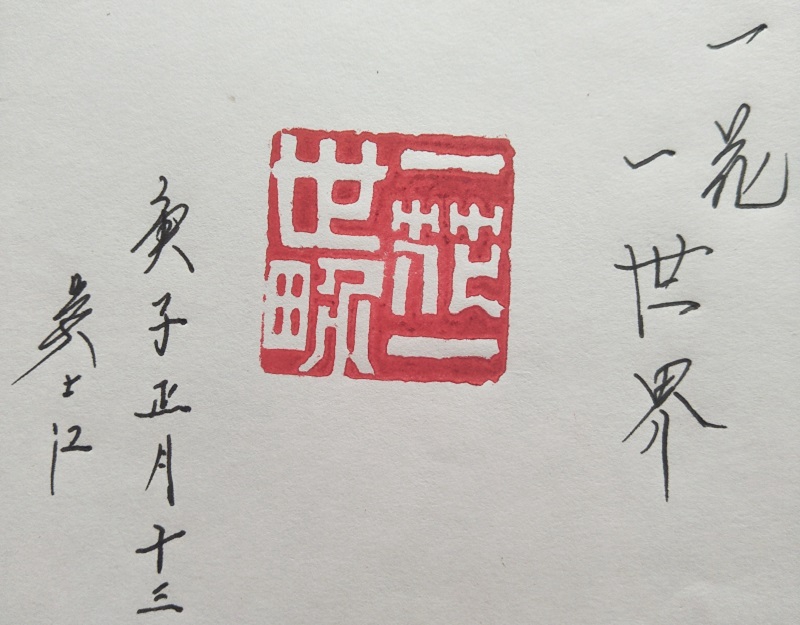 一花
一世界
一花一
世界
庚子正月十三
士江